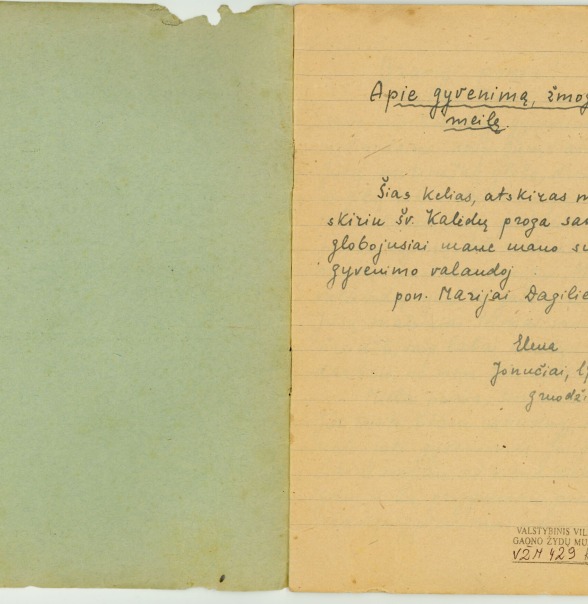 Apie gyvenimą, žmog
meilę.
Šias kelias, atskiras m
skiriu šv. Kalėdų proga sa
globojusiai mane mano su
gyvenimo valandoj
pon. Marijai Dagilie
Elena
Jonučiai, 
gruodži
VALSTYBINIS VIL
GAONO ŽYDŲ MU
VŽM 429